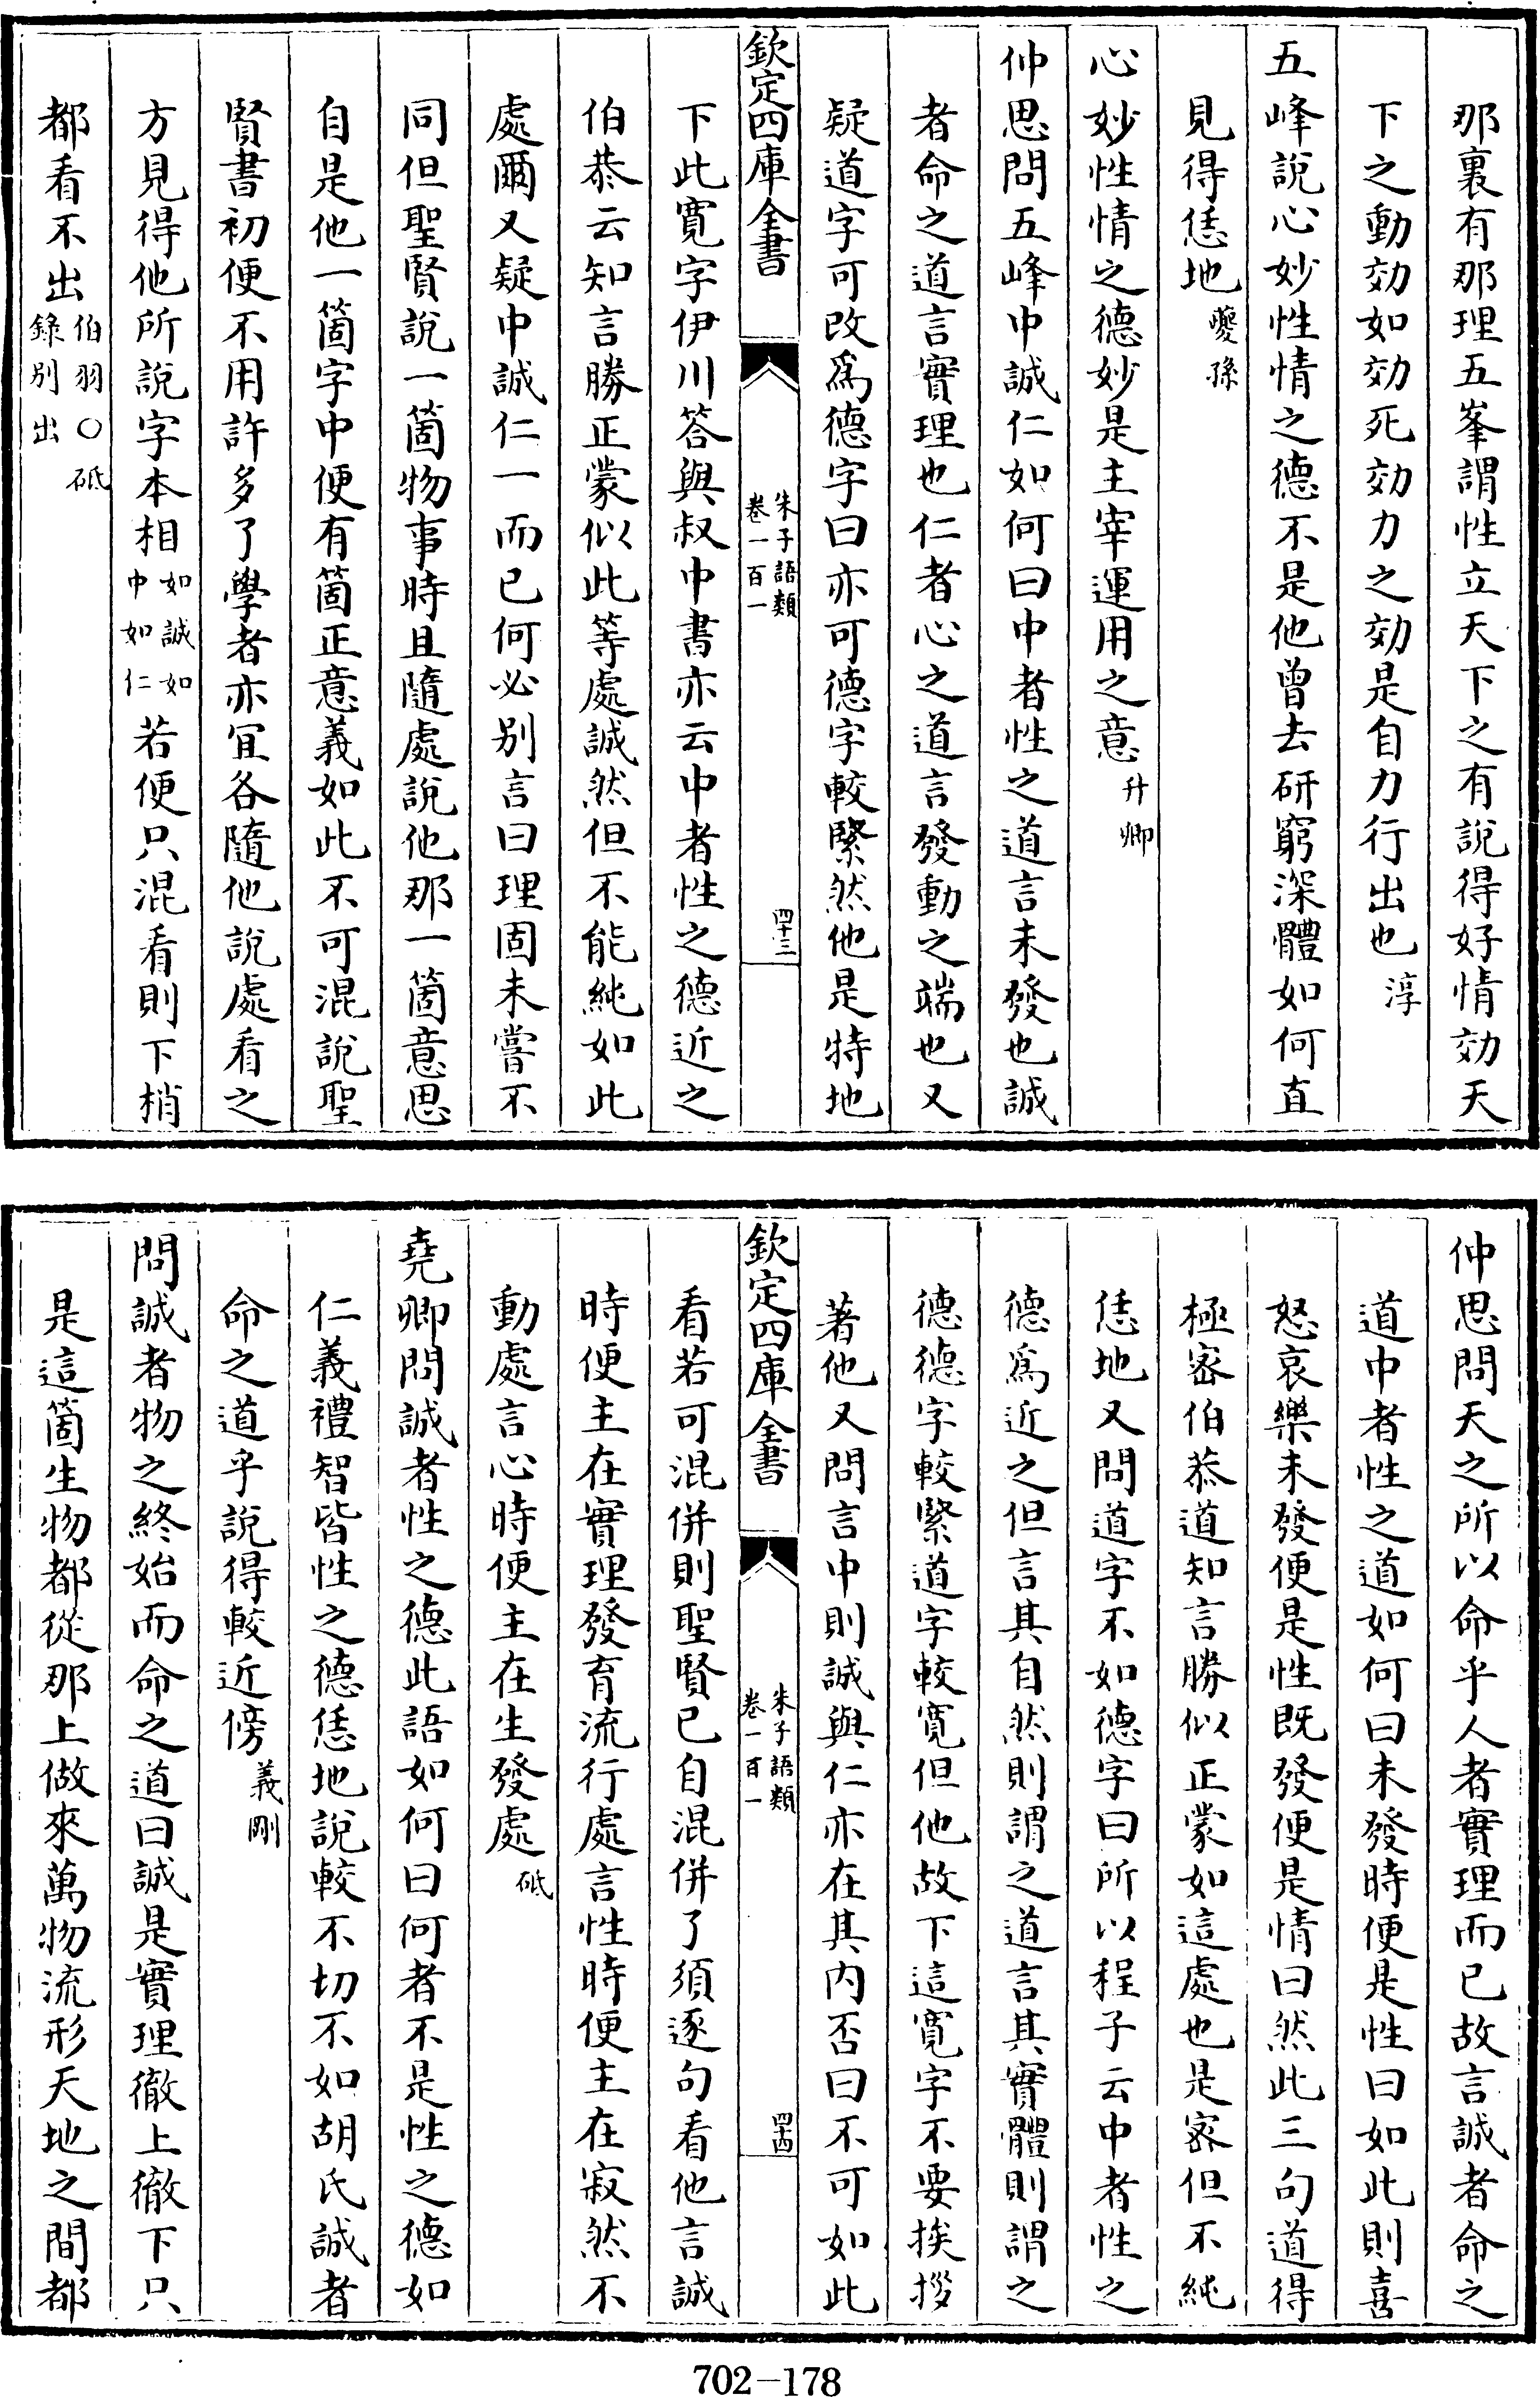 那裏有那理五峯謂性立天下之有說得好情効天
下之動効如効死効力之効是自力行出也淳
五峰說心妙性情之德不是他曾去研窮深體如何直
見得恁地夔孫
心妙性情之德妙是主宰運用之意升卿
仲思問五峰中誠仁如何曰中者性之道言未發也誠
者命之道言實理也仁者心之道言發動之端也又
疑道字可改爲德字曰亦可德字較緊然他是特地
欽定四庫全書
朱子語類
卷一百一
四十三
下此寛字伊川答與叔中書亦云中者性之德近之
伯恭云知言勝正蒙似此等處誠然但不能純如此
處爾又疑中誠仁一而已何必别言曰理固未嘗不
同但聖賢說一箇物事時且隨處說他那一箇意思
自是他一箇字中便有箇正意義如此不可混說聖
賢書初便不用許多了學者亦宜各隨他說處看之
方見得他所說字本相如誠如中如仁若便只混看則下梢
都看不出伯羽○砥錄别出
仲思問天之所以命乎人者實理而已故言誠者命之
道中者性之道如何曰未發時便是性曰如此則喜
怒哀樂未發便是性既發便是情曰然此三句道得
極密伯恭道知言勝似正蒙如這處也是密但不純
恁地又問道字不如德字曰所以程子云中者性之
德爲近之但言其自然則謂之道言其實體則謂之
德德字較緊道字較寛但他故下這寛字不要挨拶
著他又問言中則誠與仁亦在其内否曰不可如此
欽定四庫全書
朱子語類
卷一百一
四十四
看若可混併則聖賢已自混併了須逐句看他言誠
時便主在實理發育流行處言性時便主在寂然不
動處言心時便主在生發處砥
堯卿問誠者性之德此語如何曰何者不是性之德如
仁義禮智皆性之德恁地說較不切不如胡氏誠者
命之道乎說得較近傍義剛
問誠者物之終始而命之道曰誠是實理徹上徹下只
是這箇生物都從那上做來萬物流形天地之間都
702-178